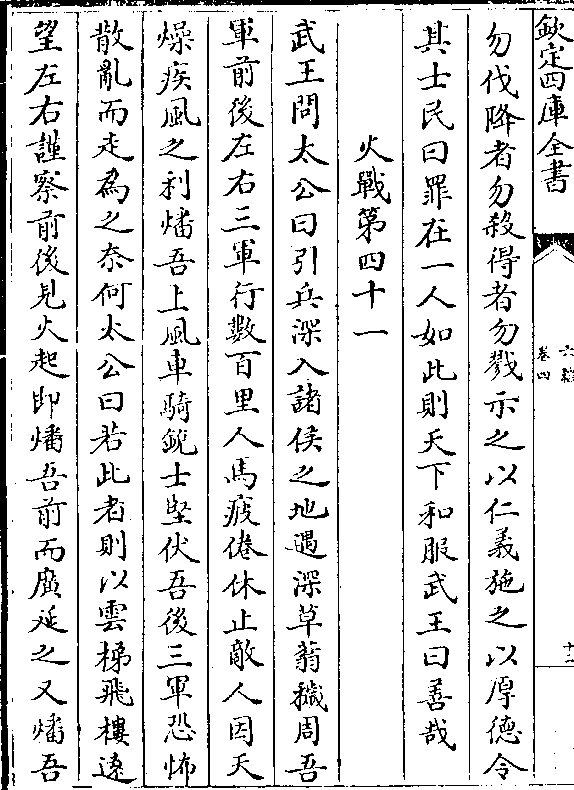 欽定四庫全書
六韜
卷四
十二
勿伐降者勿殺得者勿戮示之以仁義施之以厚德令
其士民曰罪在一人如此則天下和服武王曰善哉
火戰第四十一
武王問太公曰引兵深入諸侯之地遇深草蓊穢周吾
軍前後左右三軍行數百里人馬疲倦休止敵人因天
燥疾風之利燔吾上風車騎銳士堅伏吾後三軍恐怖
散亂而走為之奈何太公曰若此者則以雲梯飛樓遠
望左右謹察前後見火起即燔吾前而廣延之又燔吾